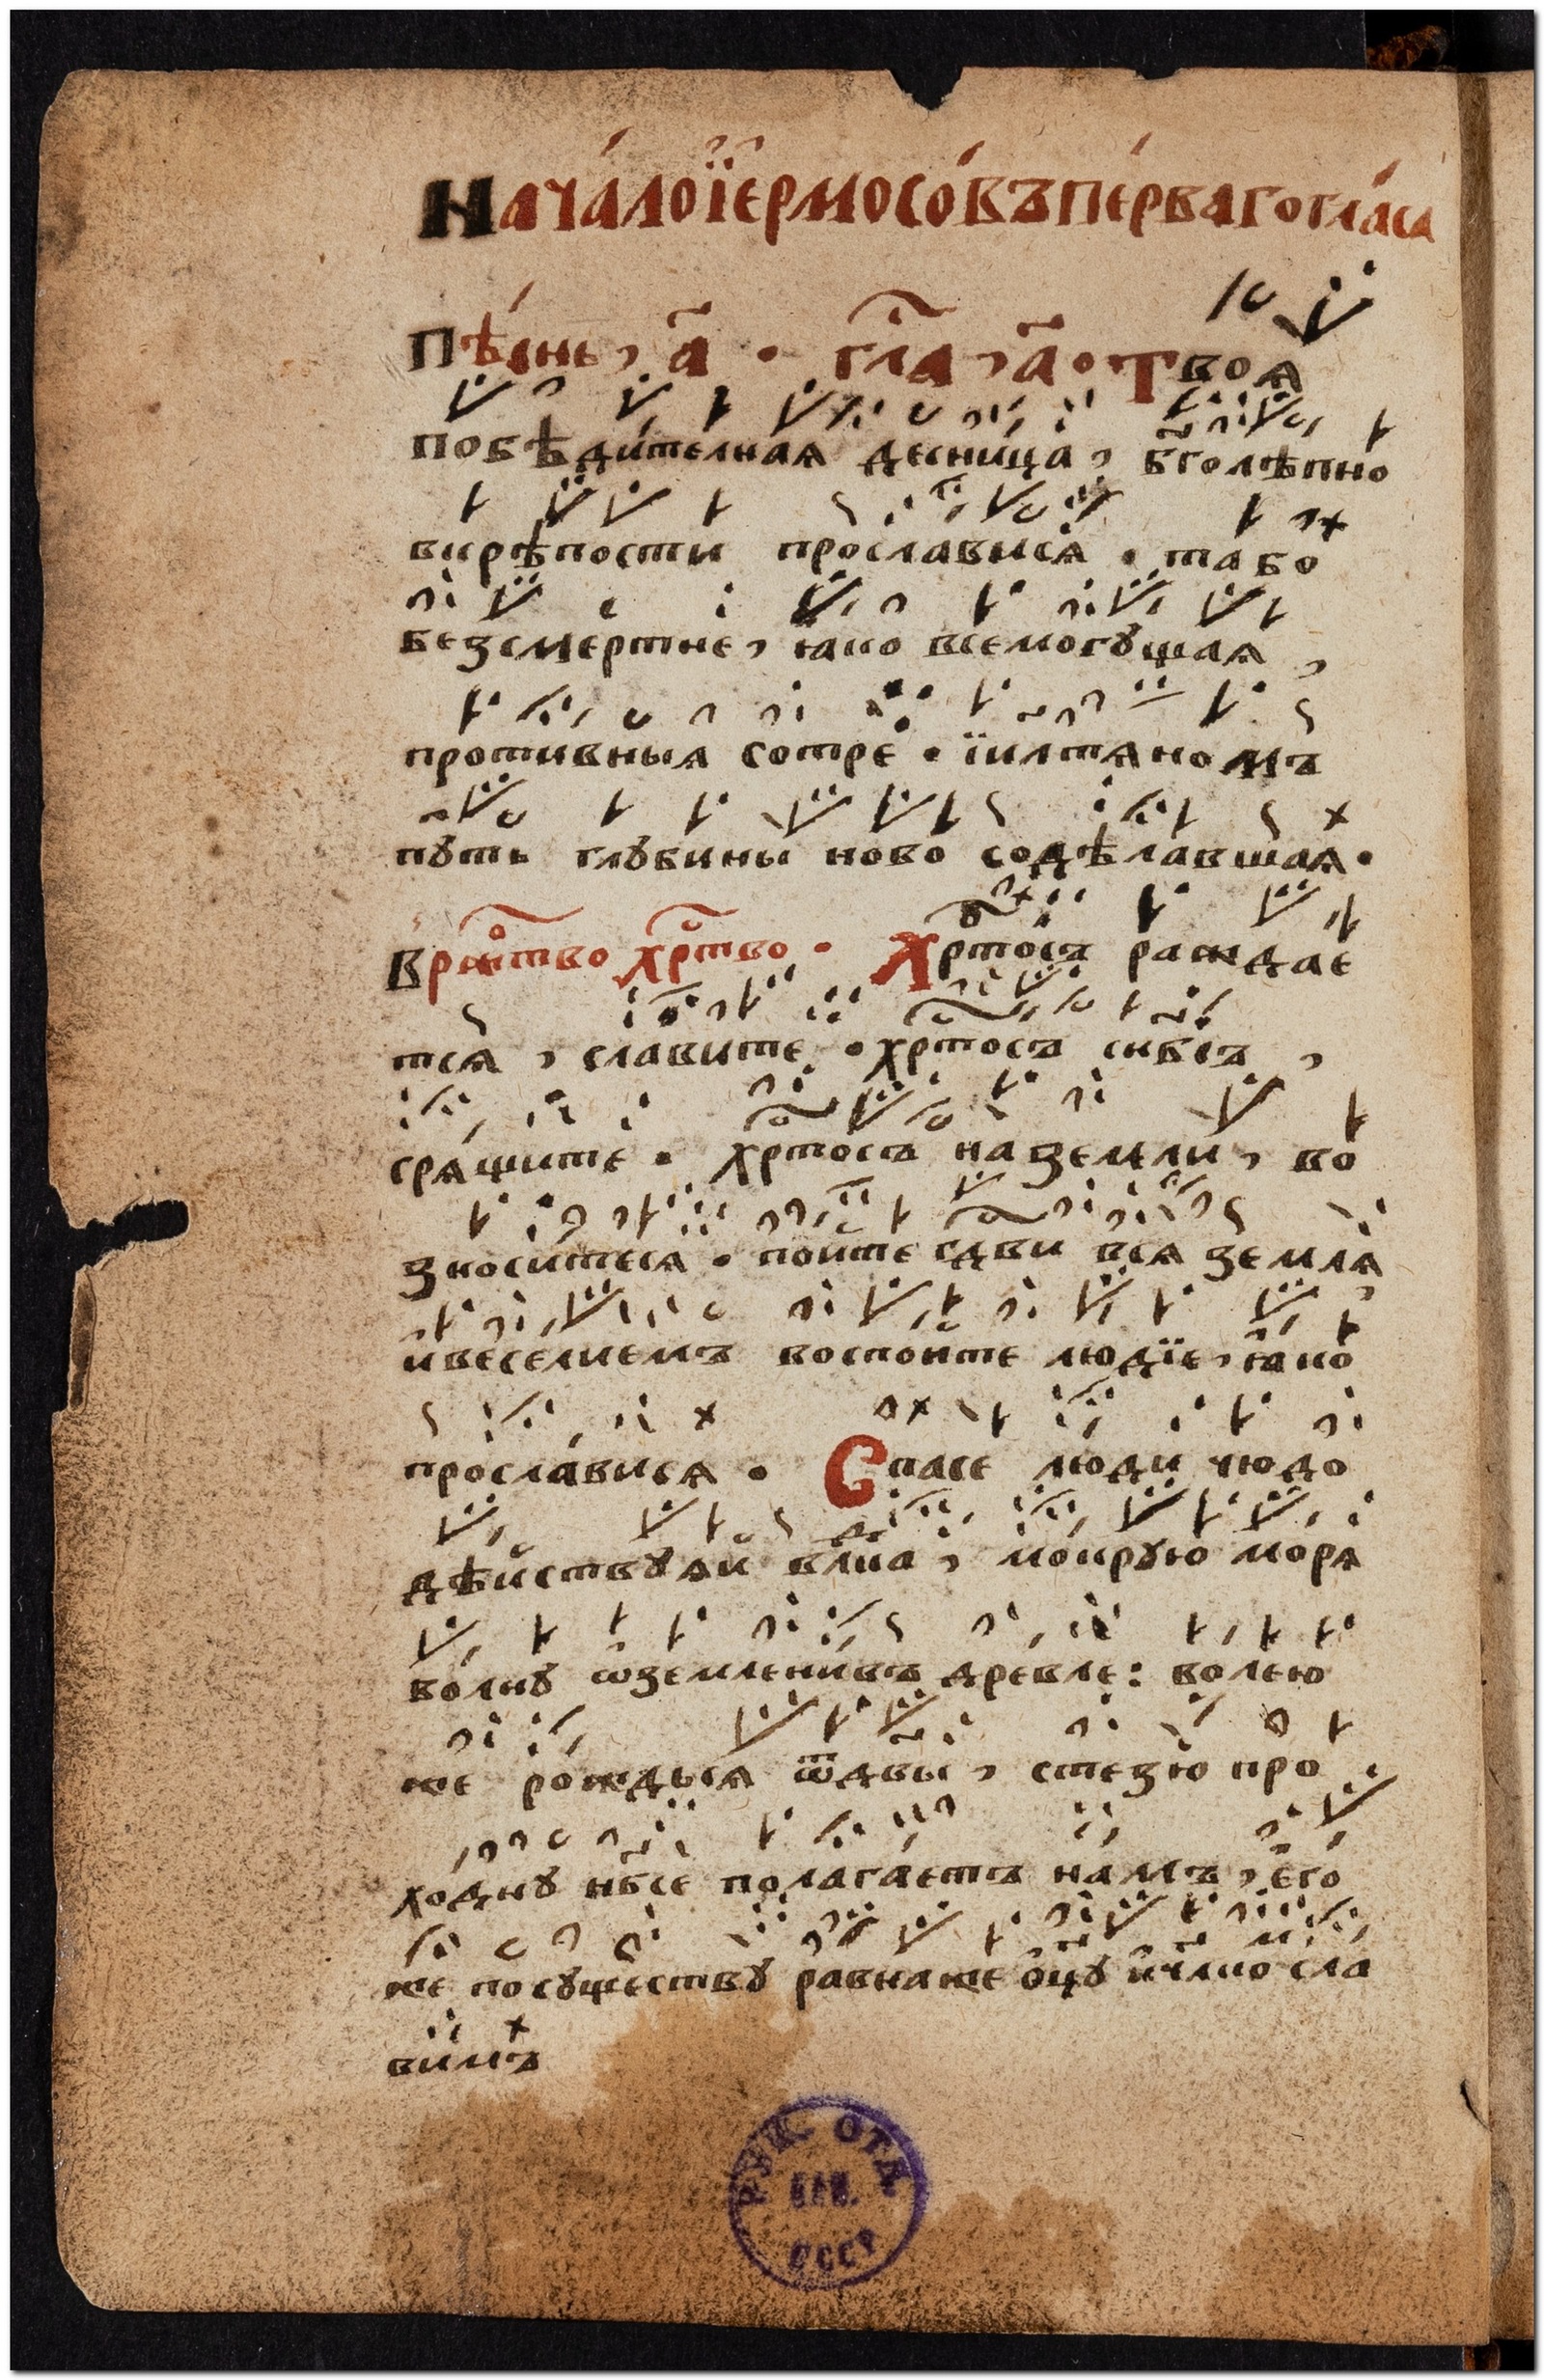 Нача́ло їе҆рмосо́въ пе́рваго гла́са
Пѣ́снь, а҃ · гла̑, а҃ · Твоѧ
побѣди́телнаѧ десни́ца, бг҃олѣпно
вкрѣпости прослависѧ · та бо
безсмертне, ꙗко всемогꙋщаѧ,
противныѧ сотре · їилтѧномъ
пꙋть глꙋбины ново содѣлавшаѧ ·
В ржⷭтво хрⷭтво · Хрⷭтосъ раждае
тсѧ, славите · хрⷭтосъ снб҃съ,
срѧщите · хрⷭтосъ на земли, во
зноси́тесѧ · пойте гдⷭви всѧ землѧ
и веселиемъ воспойте людїе, ꙗко
просла́висѧ · Спасе люди чюдо
дѣйствꙋѧй влⷣка, мокрꙋю морѧ
во́лнꙋ ѡземлени́въ древле: волею
же рождьсѧ ѿ двы, стезю про
ходнꙋ нб҃се полага́етъ на́мъ, е҆го
же по сꙋществꙋ равна же ѻ҆ц҃ꙋ и҆ чл҃ко сла
вимъ
РУК. ОТД.
БАН.
СССР